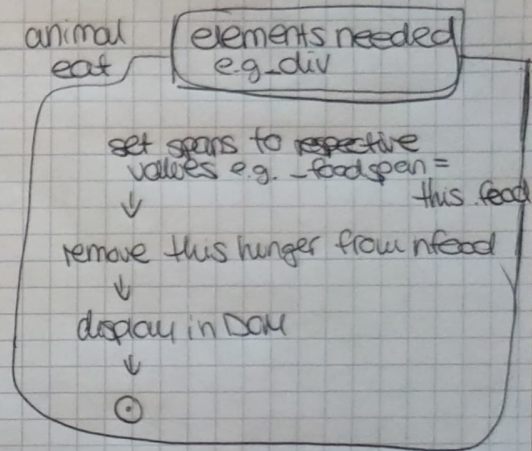 animal
eat
elements needed
e.g _div
set spans to respective
values e.g. _foodspan =
this.feed
remove this hunger from nfeed
display in DOM